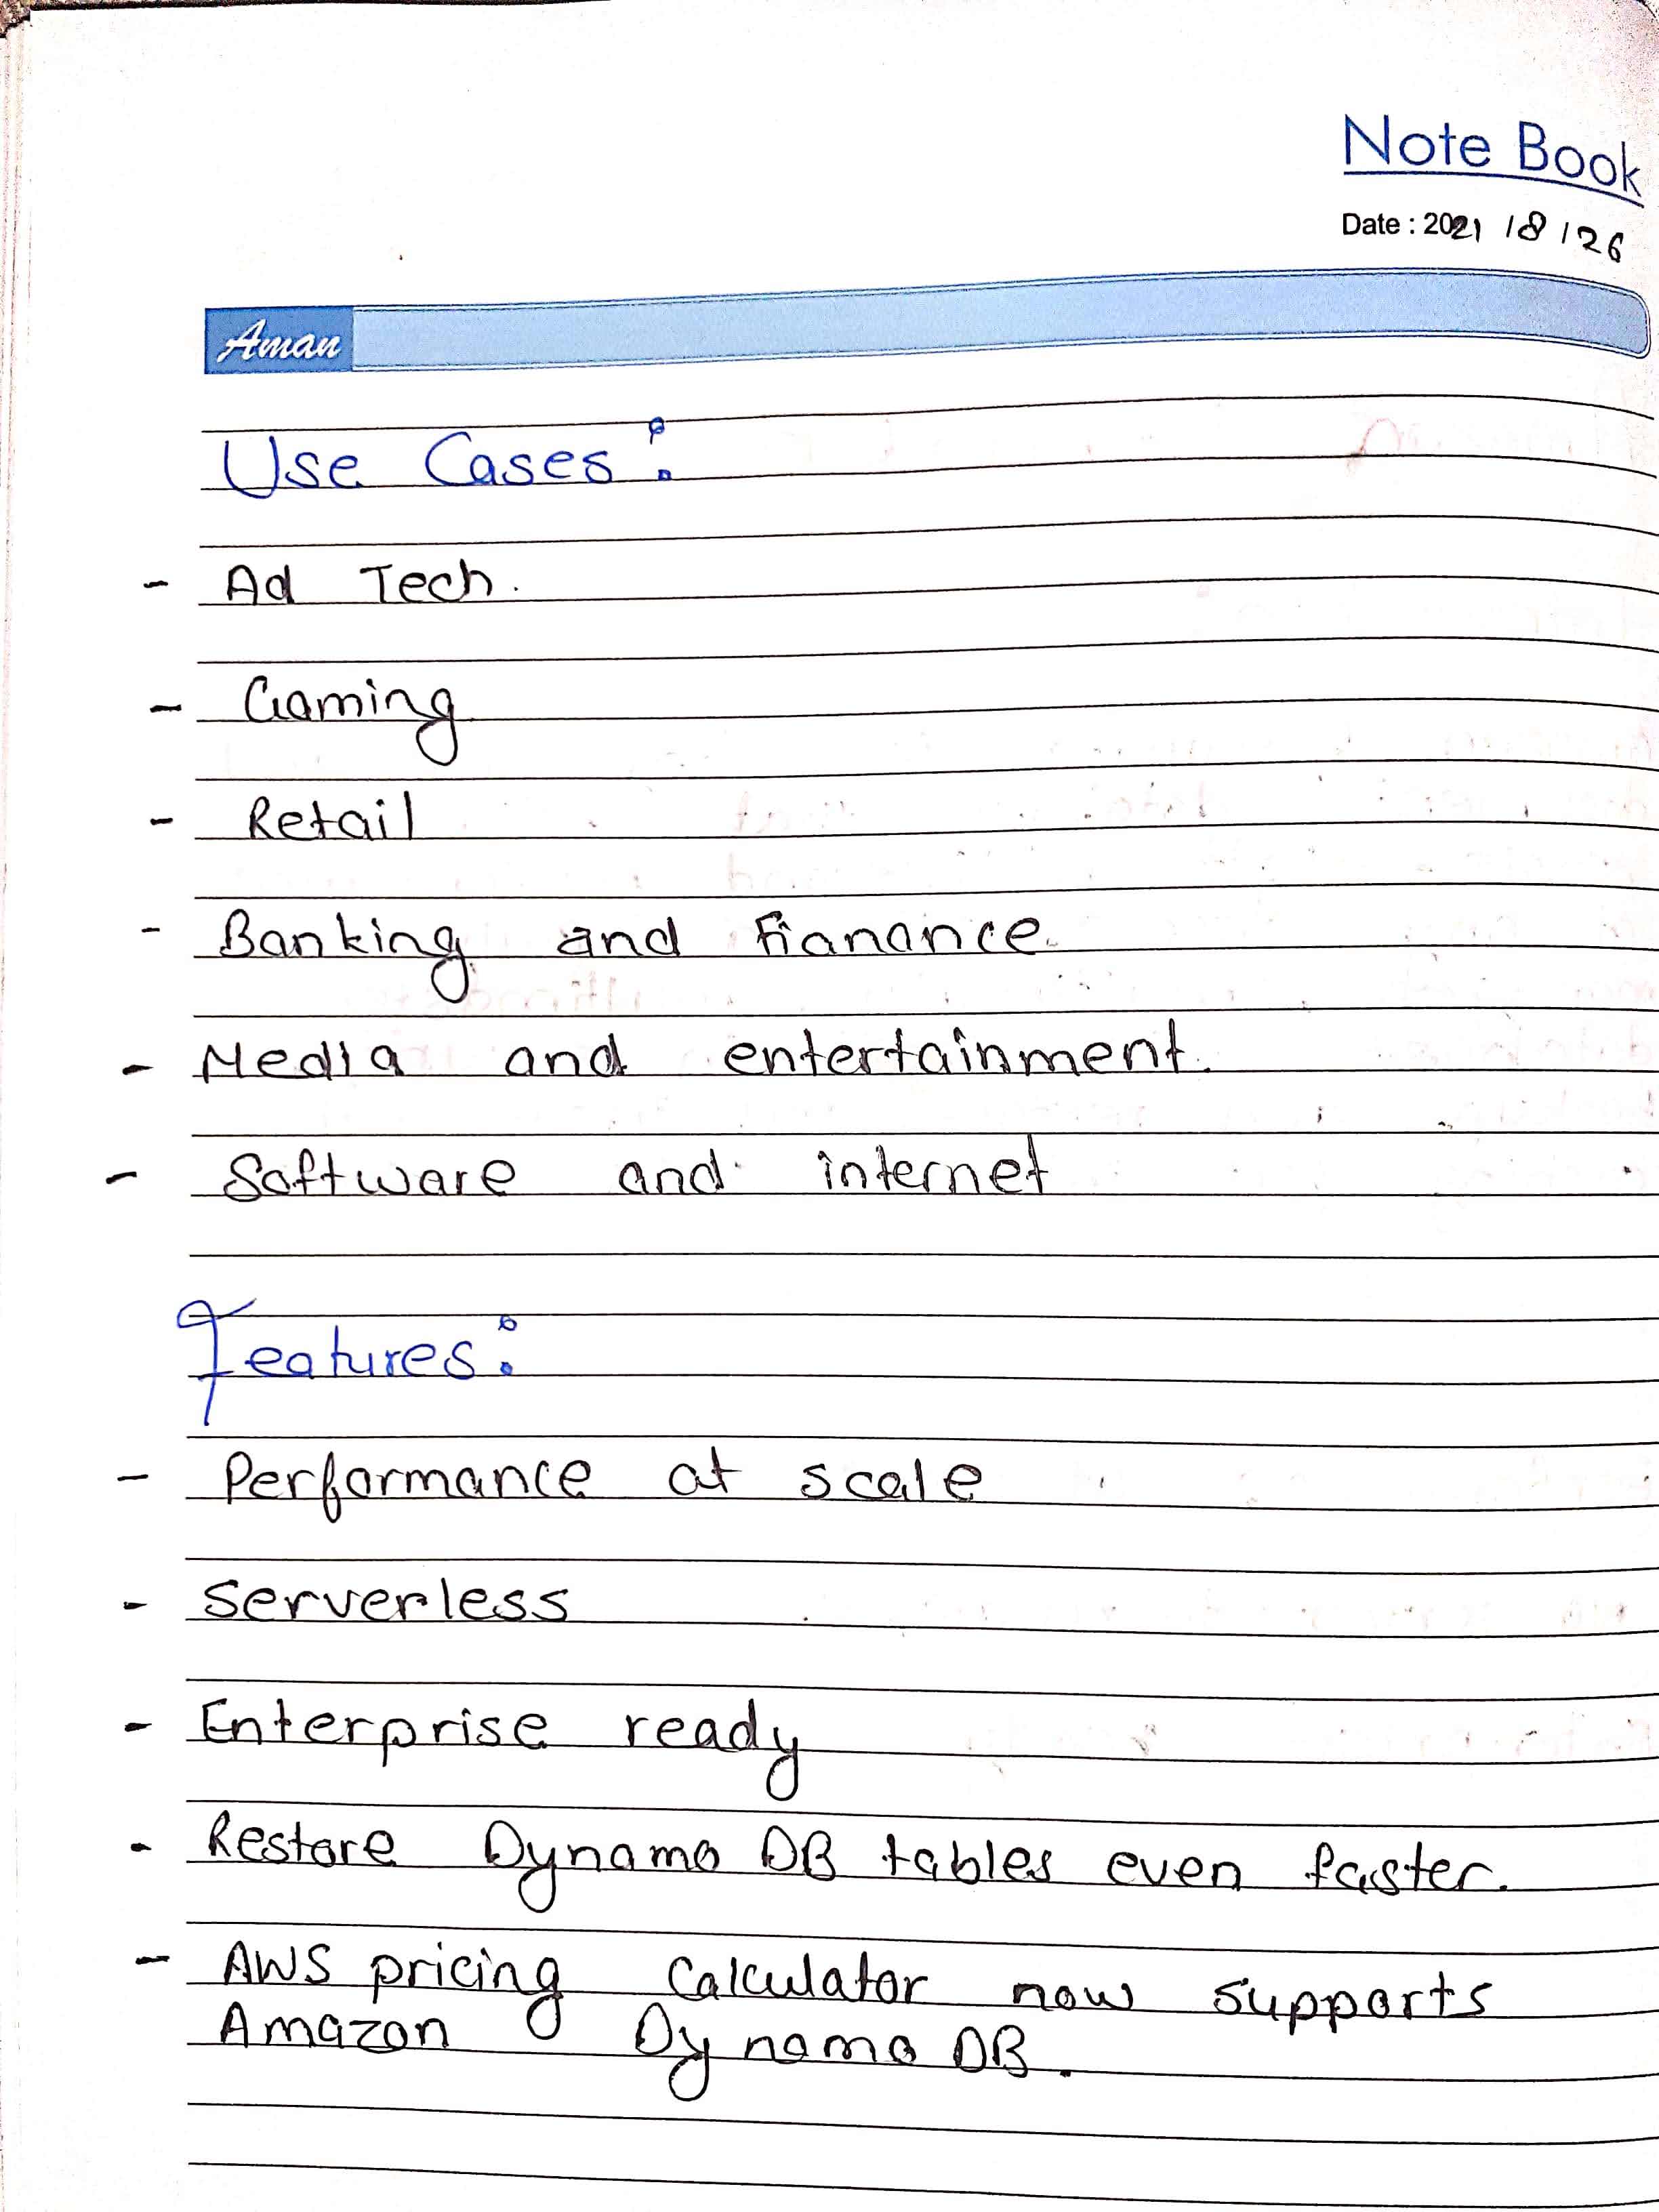 Note Book
Date : 2021 / 8 / 26
Aman
Use Cases :
- Ad Tech.
- Gaming
- Retail
- Banking and Fianance.
- Media and entertainment.
- Software and internet
Features :
- Performance at scale
- Serverless
- Enterprise ready
- Restore Dynamo DB tables even faster.
- AWS pricing Calculator now supports
Amazon Dynamo DB.